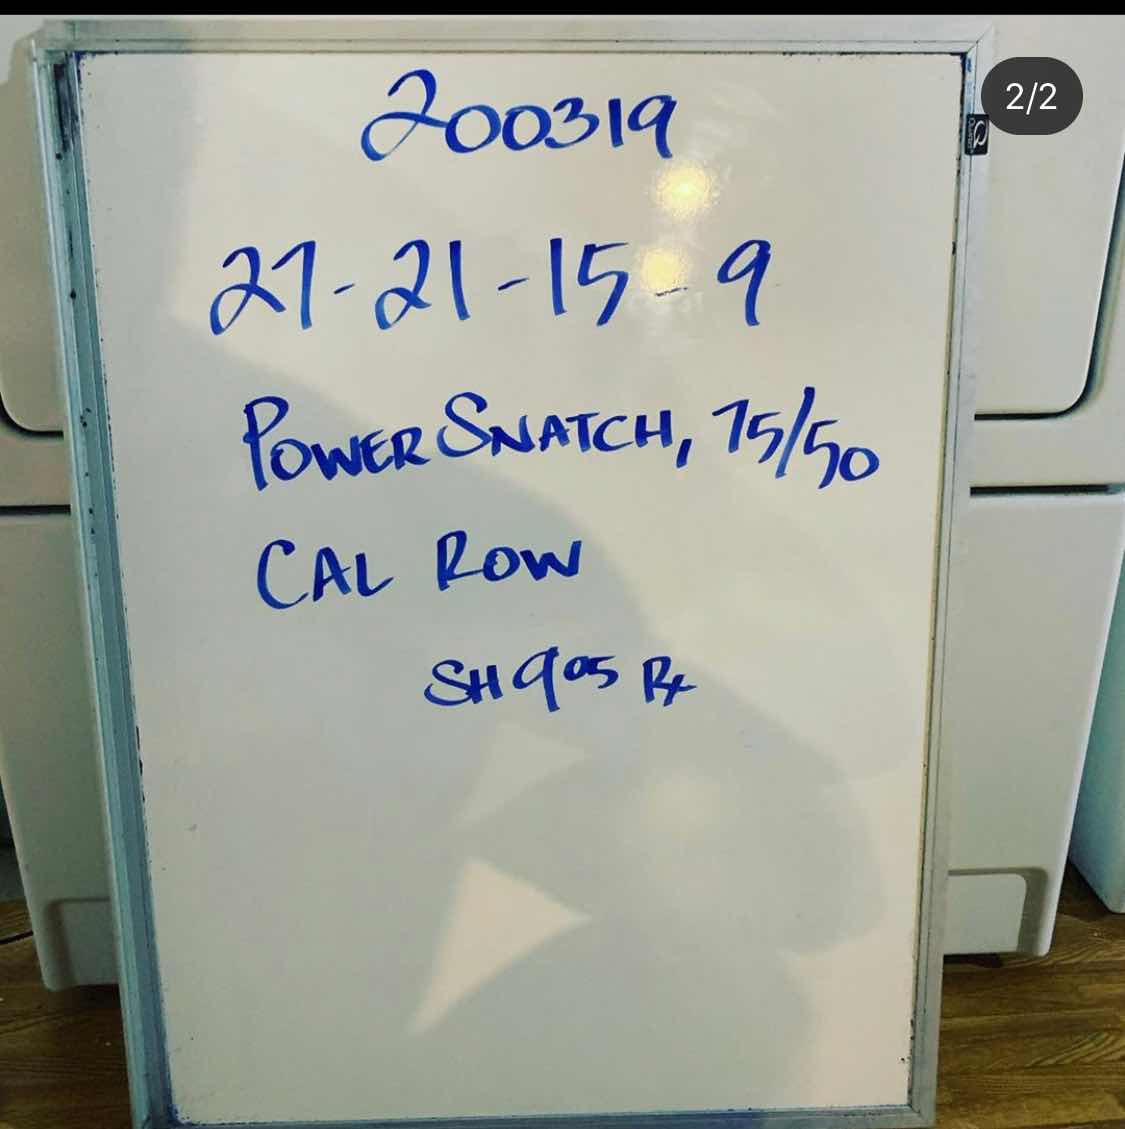 2/2
200319
27-21-15-9
POWER SNATCH, 75/50
CAL ROW
SH 905 Rx